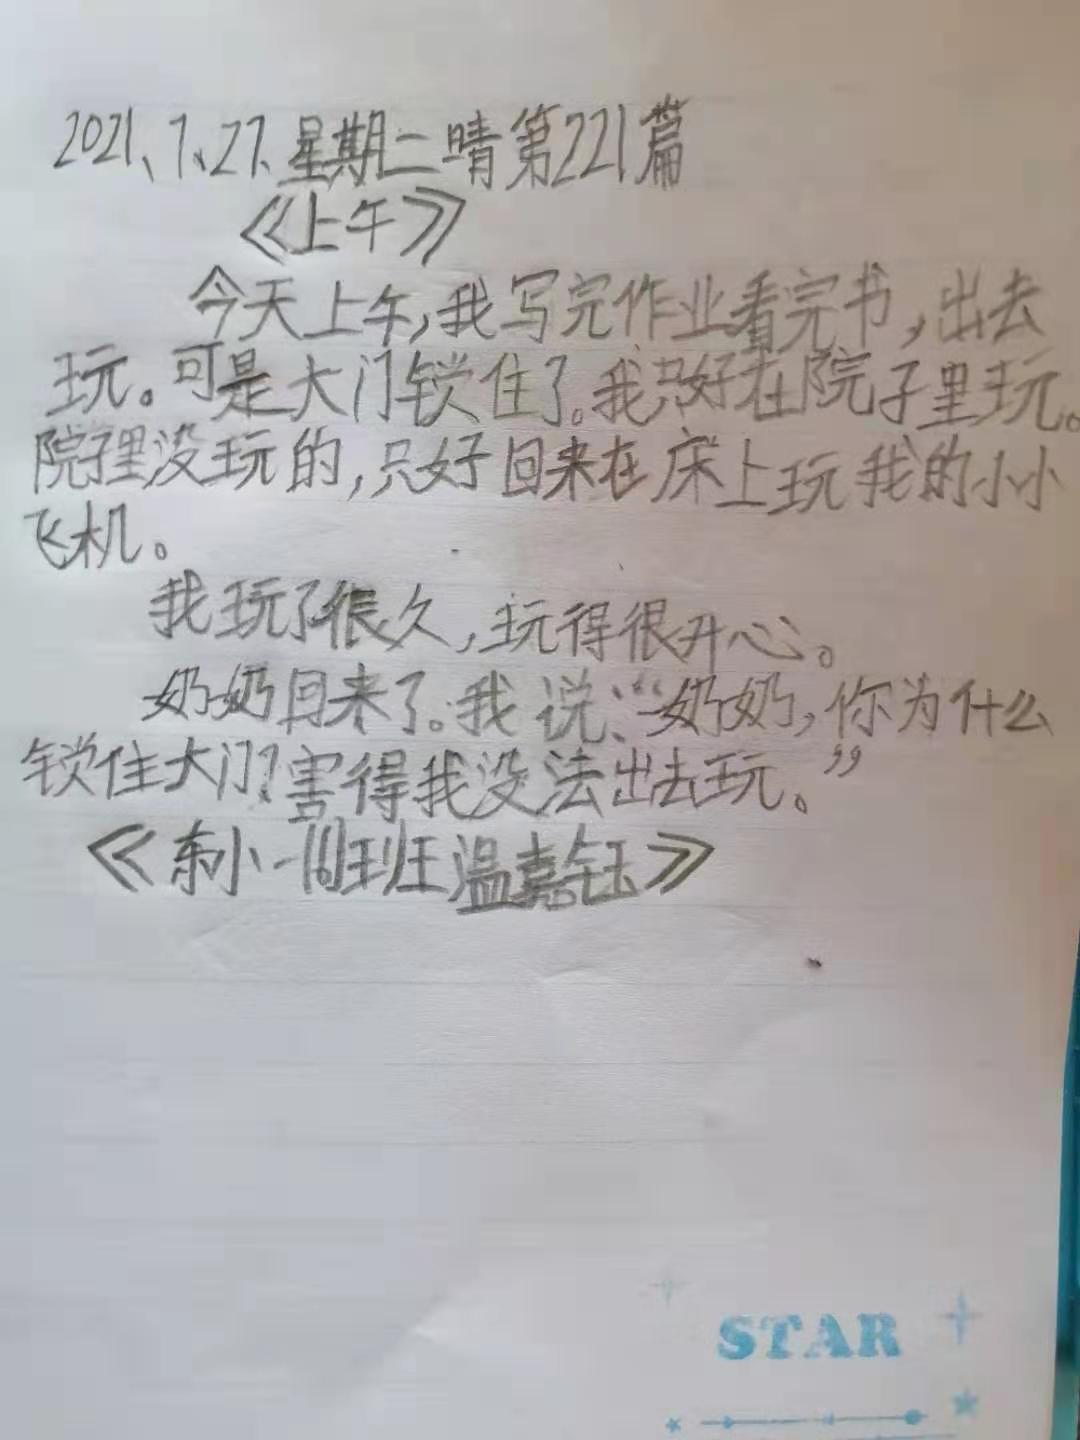 2021、7、27、星期二晴第221篇
《上午》
今天上午,我写完作业看完书,出去
玩。可是大门锁住了。我只好在院子里玩。
院子里没玩的,只好回来在床上玩我的小小
飞机。
我玩了很久,玩得很开心。
奶奶回来了。我说:“奶奶,你为什么
锁住大门?害得我没法出去玩。”
《东小一16班王温嘉钰》
STAR